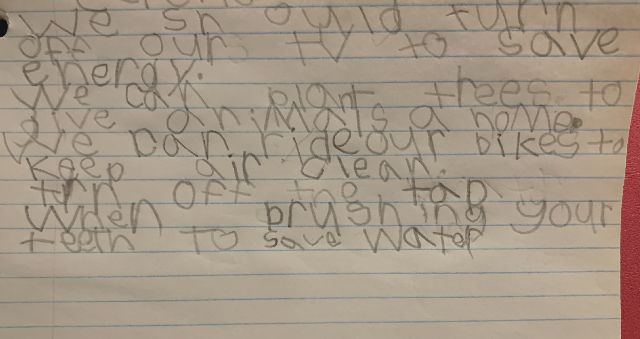 We should turn
off our tv to save
energy.
We can plant trees to
give animals a home.
We can ride our bikes to
keep air clean.
turn off the tap
when brushing your
teeth to save water